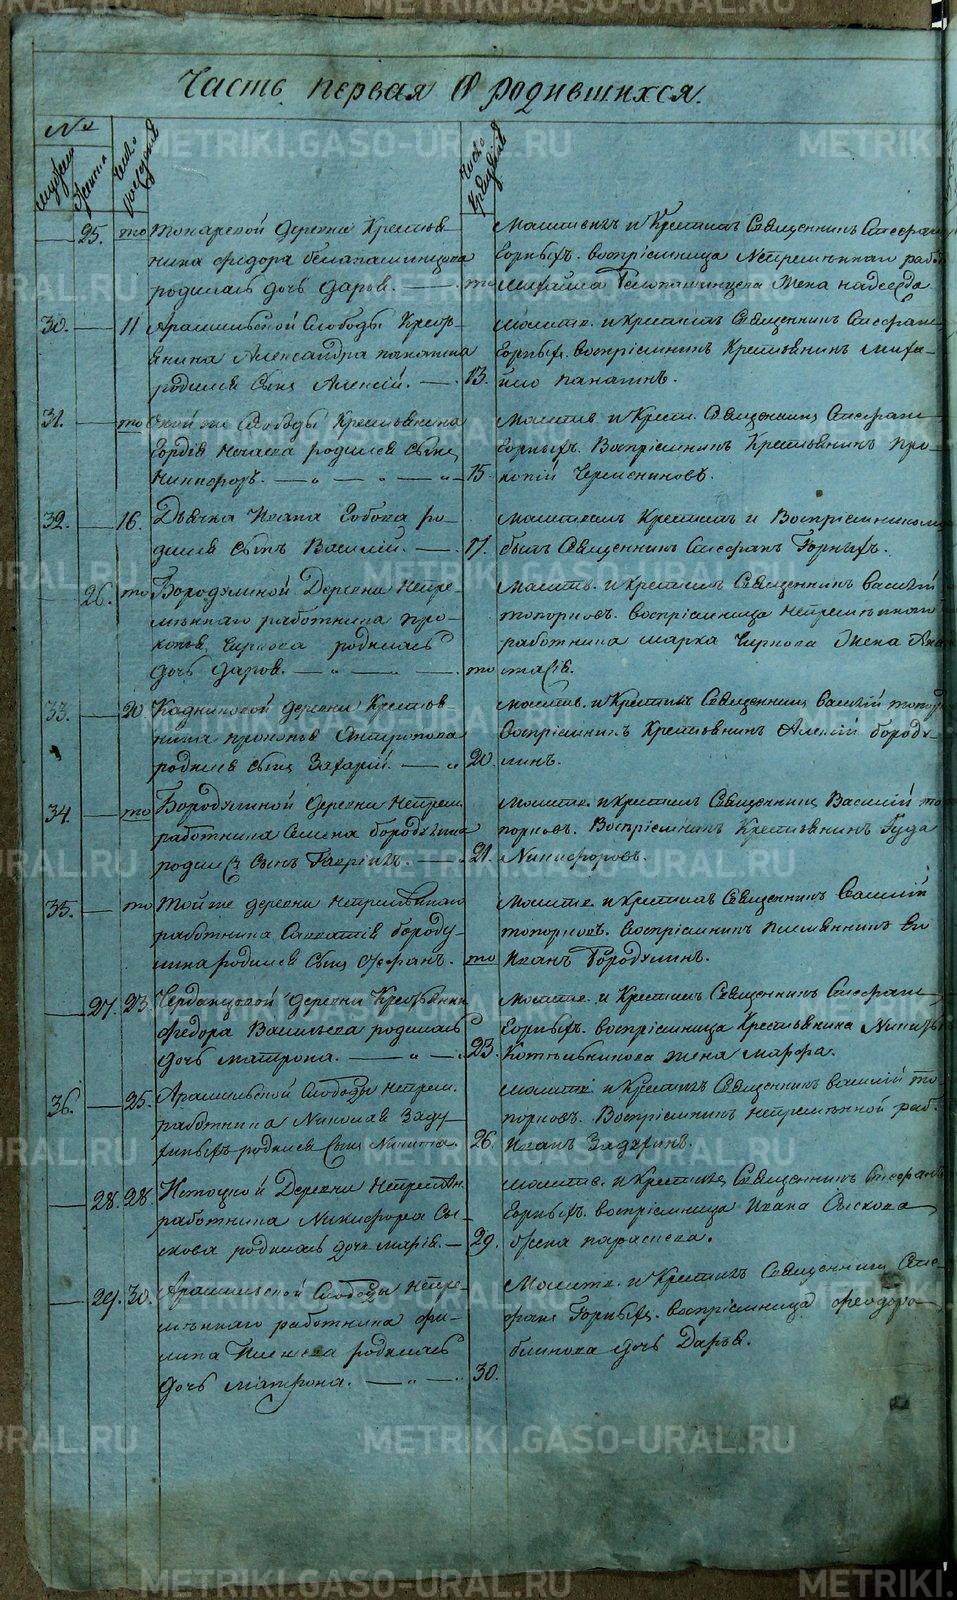 Часть первая О родившихся.
№
мужеска
женска
число рождения
число крещения
25. то Токаревой деревни Крестья-
нина Федора Белопашинцова
родилась дочь Дарья.
то
Молитвилъ и Крестилъ Священникъ Стефанъ
Горныхъ. Воспріемница Непремѣннаго рабо
Михайла Белопашинцова жена Надежда
30. 11 Арамильской Слободы Кресть-
янина Александра
родился Сынъ Алексій.
13.
Молитв. и Крестилъ Священникъ Стефанъ
Горныхъ. Воспріемникъ Крестьянинъ Миха-
йло
31. то Оной же Слободы Крестьянина
Гордѣя Нечаева родился Сынъ
Никифоръ.
15
Молитв. и Крест. Священникъ Стефанъ
Горныхъ. Воспріемникъ Крестьянинъ Про-
копій Черемениновъ.
32. 16. Дьячка Ивана ро-
дился Сынъ Василій.
17.
Молитвилъ Крестилъ и Воспріемникомъ
былъ Священникъ Стефанъ Горныхъ.
26. то Бородулиной Деревни Непре-
мѣннаго работника Про-
копья Чиркова родилась
дочь Дарья.
то
Молитв. и Крестилъ Священникъ Василій
Топорковъ. Воспріемница непремѣннаго
работника Марка Чиркова жена Ана
стасія.
33. 20 Кадниковой деревни Крестья-
нина Прокопья Антропова
родился Сынъ Захарій.
20.
Молитв. и Крестилъ Священникъ Василій Топор
Воспріемникъ Крестьянинъ Алексій Бороду-
линъ.
34. то Бородулиной деревни Непрем.
работника Семена Бородулина
родился Сынъ Гавріилъ.
21.
Молитв. и Крестилъ Священникъ Василій То
порковъ. Воспріемникъ Крестьянинъ Гуда
Никифоровъ.
35. то Той же деревни непремѣннаго
работника Савватія Бороду-
лина родился Сынъ Стефанъ.
то
Молитв. и Крестилъ Священникъ Василій
Топорковъ. Воспріемникъ племянникъ Ев
Иванъ Бородулинъ.
27. 23. деревни Крестьянина
Федора Васильева родилась
дочь Матрона.
23.
Молитв. и Крестилъ Священникъ Стефанъ
Горныхъ. Воспріемница Крестьянина Никиты
Котельникова жена Марфа.
36. 25. Арамильской Слободы Непрем.
работника Николая Заду-
хиныхъ родился Сынъ Никита.
26.
Молитв. и Крестилъ Священникъ Василій То-
порковъ. Воспріемникъ непремѣнной раб.
Иванъ Задухинъ.
28. 28. Истоцкой Деревни Непремѣн.
работника Никифора Сы-
скова родилась дочь Марія.
29.
Молитв. и Крестилъ Священникъ Стефанъ
Горныхъ. Воспріемница Ивана Сыскова
жена Параскева.
29. 30. Арамильской Слободы Непре-
мѣннаго работника Фи-
липа родилась
дочь Матрона.
30.
Молитв. и Крестилъ Священникъ Сте-
фанъ Горныхъ. Воспріемница Феодора
Блинова дочь Дарья.
METRIKI.GASO-URAL.RU